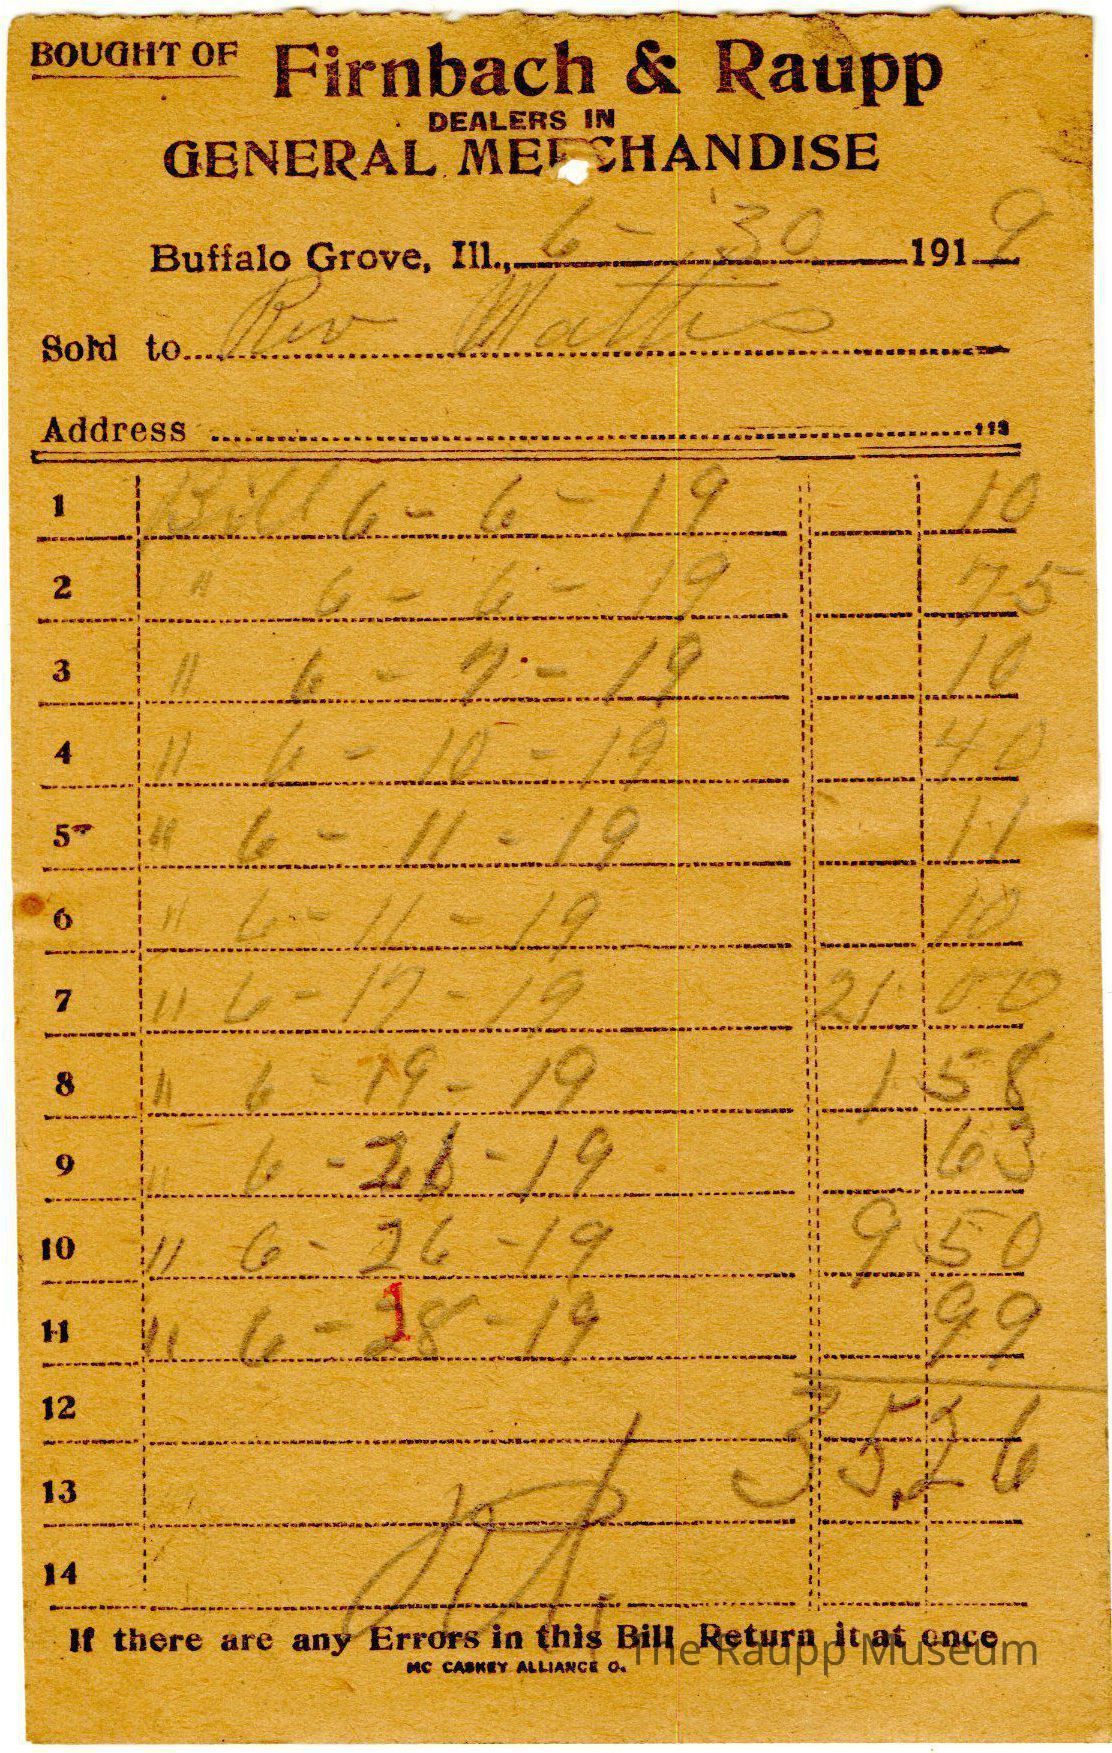 BOUGHT OF Firnbach & Raupp
DEALERS IN
GENERAL MERCHANDISE
Buffalo Grove, Ill., 6 - '30 1919
Sold to Rev Mathis
Address 113
1 Bill 6 - 6 - 19 10
2 " 6 - 6 - 19 75
3 " 6 - 7 - 19 10
4 " 6 - 10 - 19 40
5 " 6 - 11 - 19 11
6 " 6 - 11 - 19 10
7 " 6 - 17 - 19 21 00
8 " 6 - 19 - 19 1 58
9 " 6 - 19 63
10 " 6 - 26 - 19 9 50
11 " 6 - 28 - 19 99
1
12
35,26
13
14
If there are any Errors in this Bill Return it at once
MC CASKEY ALLIANCE O.
The Raupp Museum